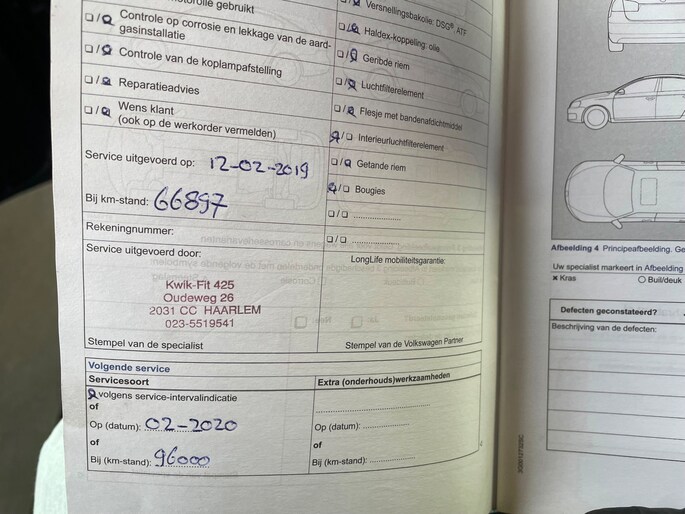 motorolie gebruikt
Controle op corrosie en lekkage van de aard-
gasinstallatie
Controle van de koplampafstelling
Reparatieadvies
Wens klant
(ook op de werkorder vermelden)
Service uitgevoerd op: 12-02-2019
Bij km-stand: 66897
Rekeningnummer:
Service uitgevoerd door:
Kwik-Fit 425
Oudeweg 26
2031 CC HAARLEM
023-5519541
Stempel van de specialist
Versnellingsbakolie: DSG®, ATF
Haldex-koppeling: olie
Geribde riem
Luchtfilterelement
Flesje met bandenafdichtmiddel
Interieurluchtfilterelement
Getande riem
Bougies
LongLife mobiliteitsgarantie:
Stempel van de Volkswagen Partner
Volgende service
Servicesoort
volgens service-intervalindicatie
of
Op (datum): 02-2020
of
Bij (km-stand): 96000
Extra (onderhouds)werkzaamheden
Op (datum):
of
Bij (km-stand):
Afbeelding 4 Principeafbeelding. Ge
Uw specialist markeert in Afbeelding
Kras Buil/deuk
Defecten geconstateerd?
Beschrijving van de defecten: